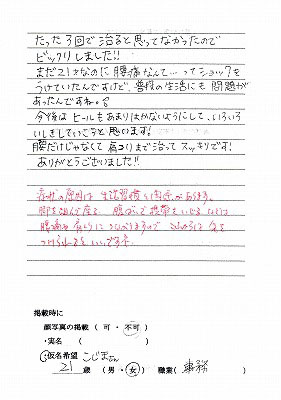 たった3回で治ると思ってなかったので
ビックリしました!!
まだ21才なのに腰痛なんて…ってショックを
うけていたんですけど、普段の生活にも問題が
あったんですね。
今後はヒールもあまりはかないようにして、いろいろ
いしきしていこうと思います!
腰だけじゃなくて肩コリまで治ってスッキリです!
ありがとうございました!!
症状の原因は生活習慣と関係があります。
脚を組んで座る、腹ばいで携帯をいじるなどは
腰痛や肩こりに
掲載時に
顔写真の掲載 ( 可 ・ 不可 )
・実名 ( )
・仮名希望 こじまさん
21 歳 (男・女) 職業( 事務 )